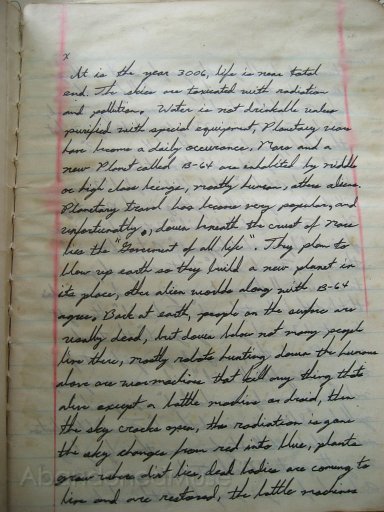 x
It is the year 3006, life is near total
end. The skies are toxicated with radiation
and pollution. Water is not drinkable unless
purified with special equipment, Planetary wars
have become a daily occurance. Mars and a
new Planet called B-64 are inhabited by middle
or high class beings, mostly human, others aliens.
Planetary travel has become very popular, and
unfortunatly, down beneath the crust of Mars
lies the "Goverment of all life". They plan to
blow up earth so they build a new planet in
its place, other alien worlds along with B-64
agree. Back at earth, people on the surface are
usually dead, but down below not many people
live there, mostly robots hunting down the humans
above are warmachines that kill any thing thats
alive except a battle machine or droid, then
the sky cracks open, the radiation is gone
the sky changes from red into blue, plants
grow where dirt lies, dead bodies are coming to
live and are restored, the battle machines